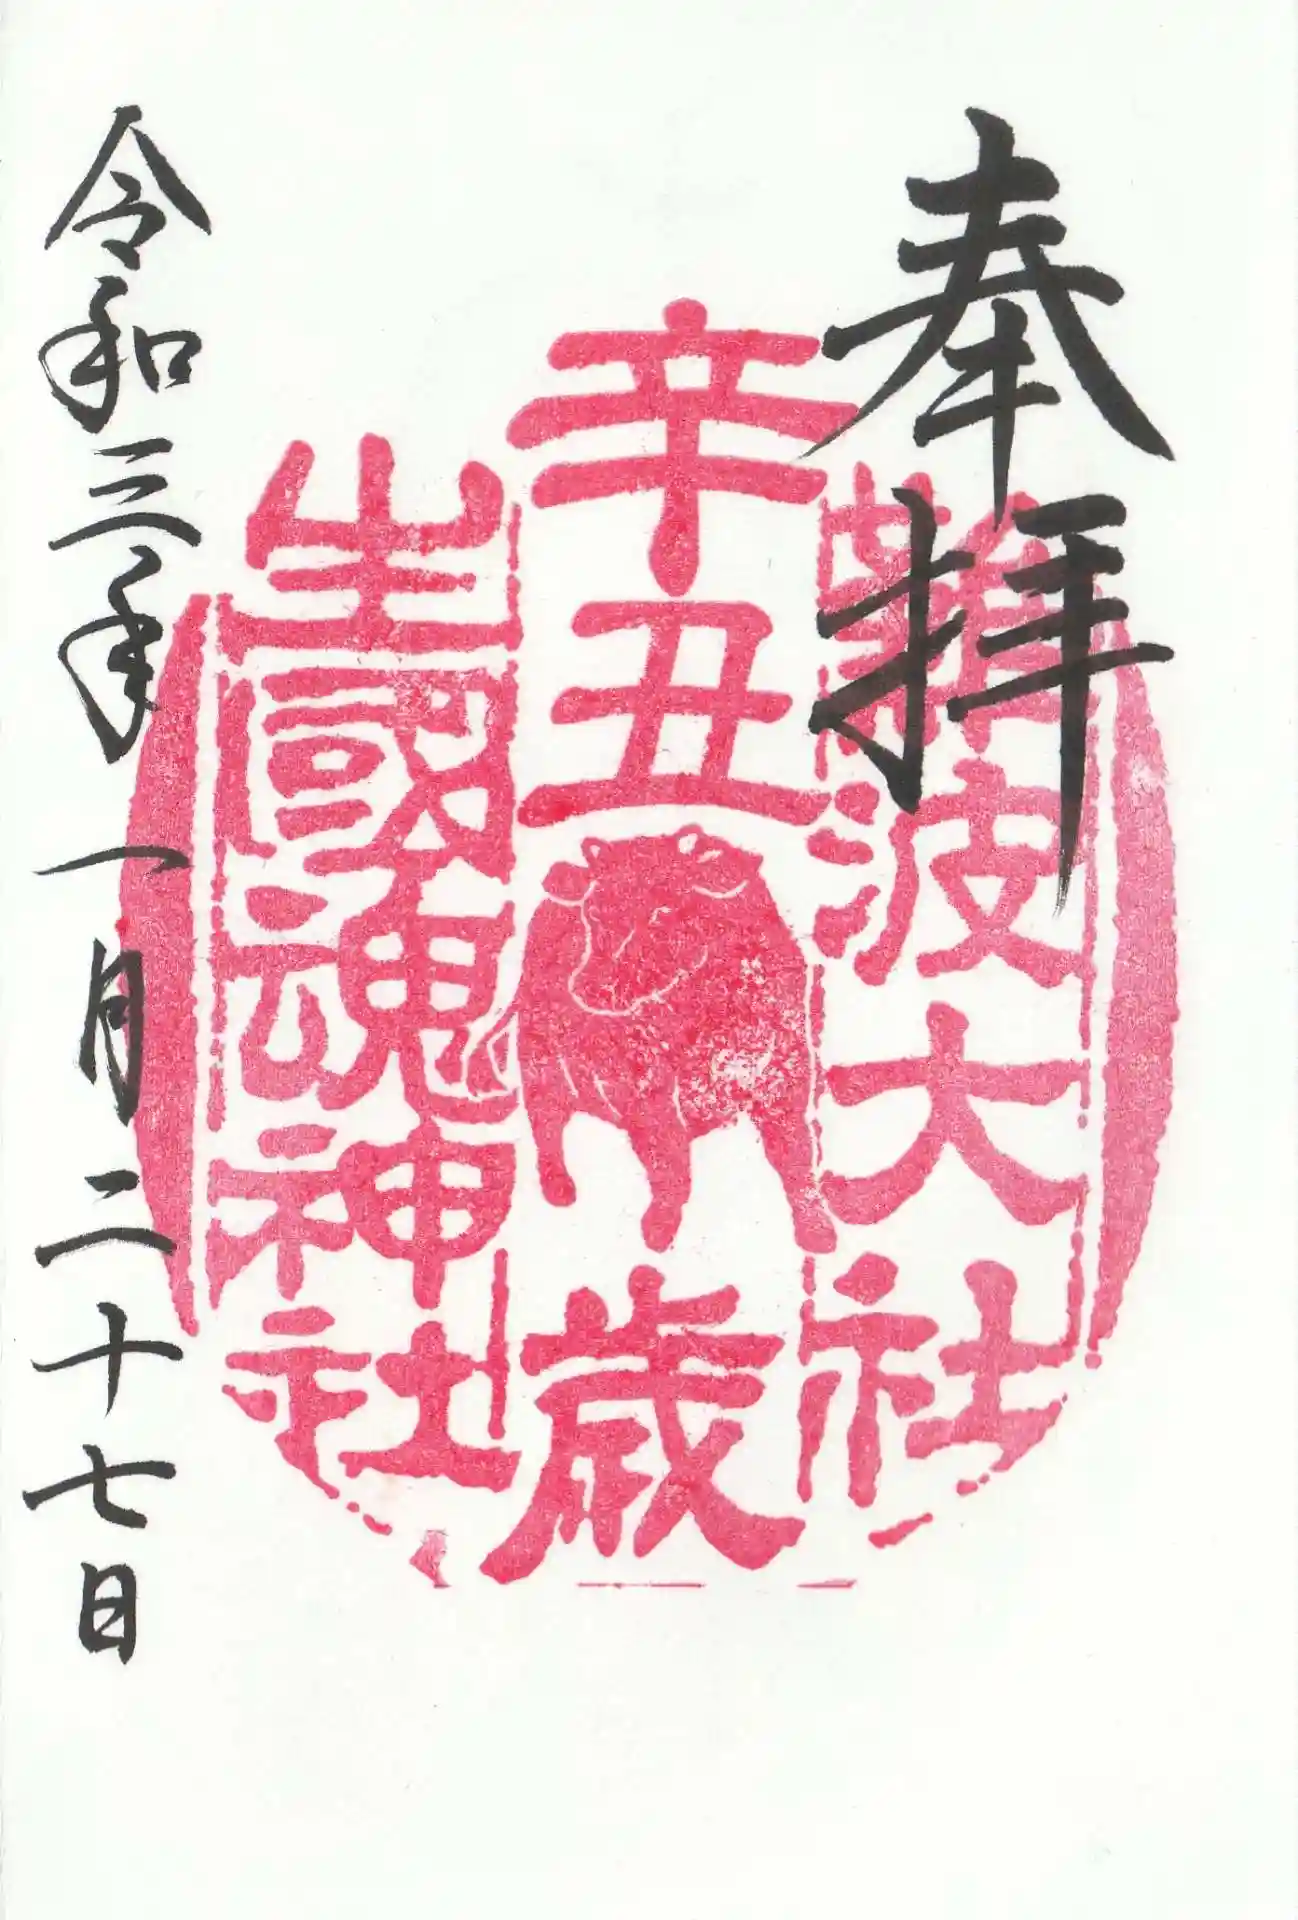 奉拝
難波大社
辛丑
歳
生國魂神社
令和三年一月二十七日